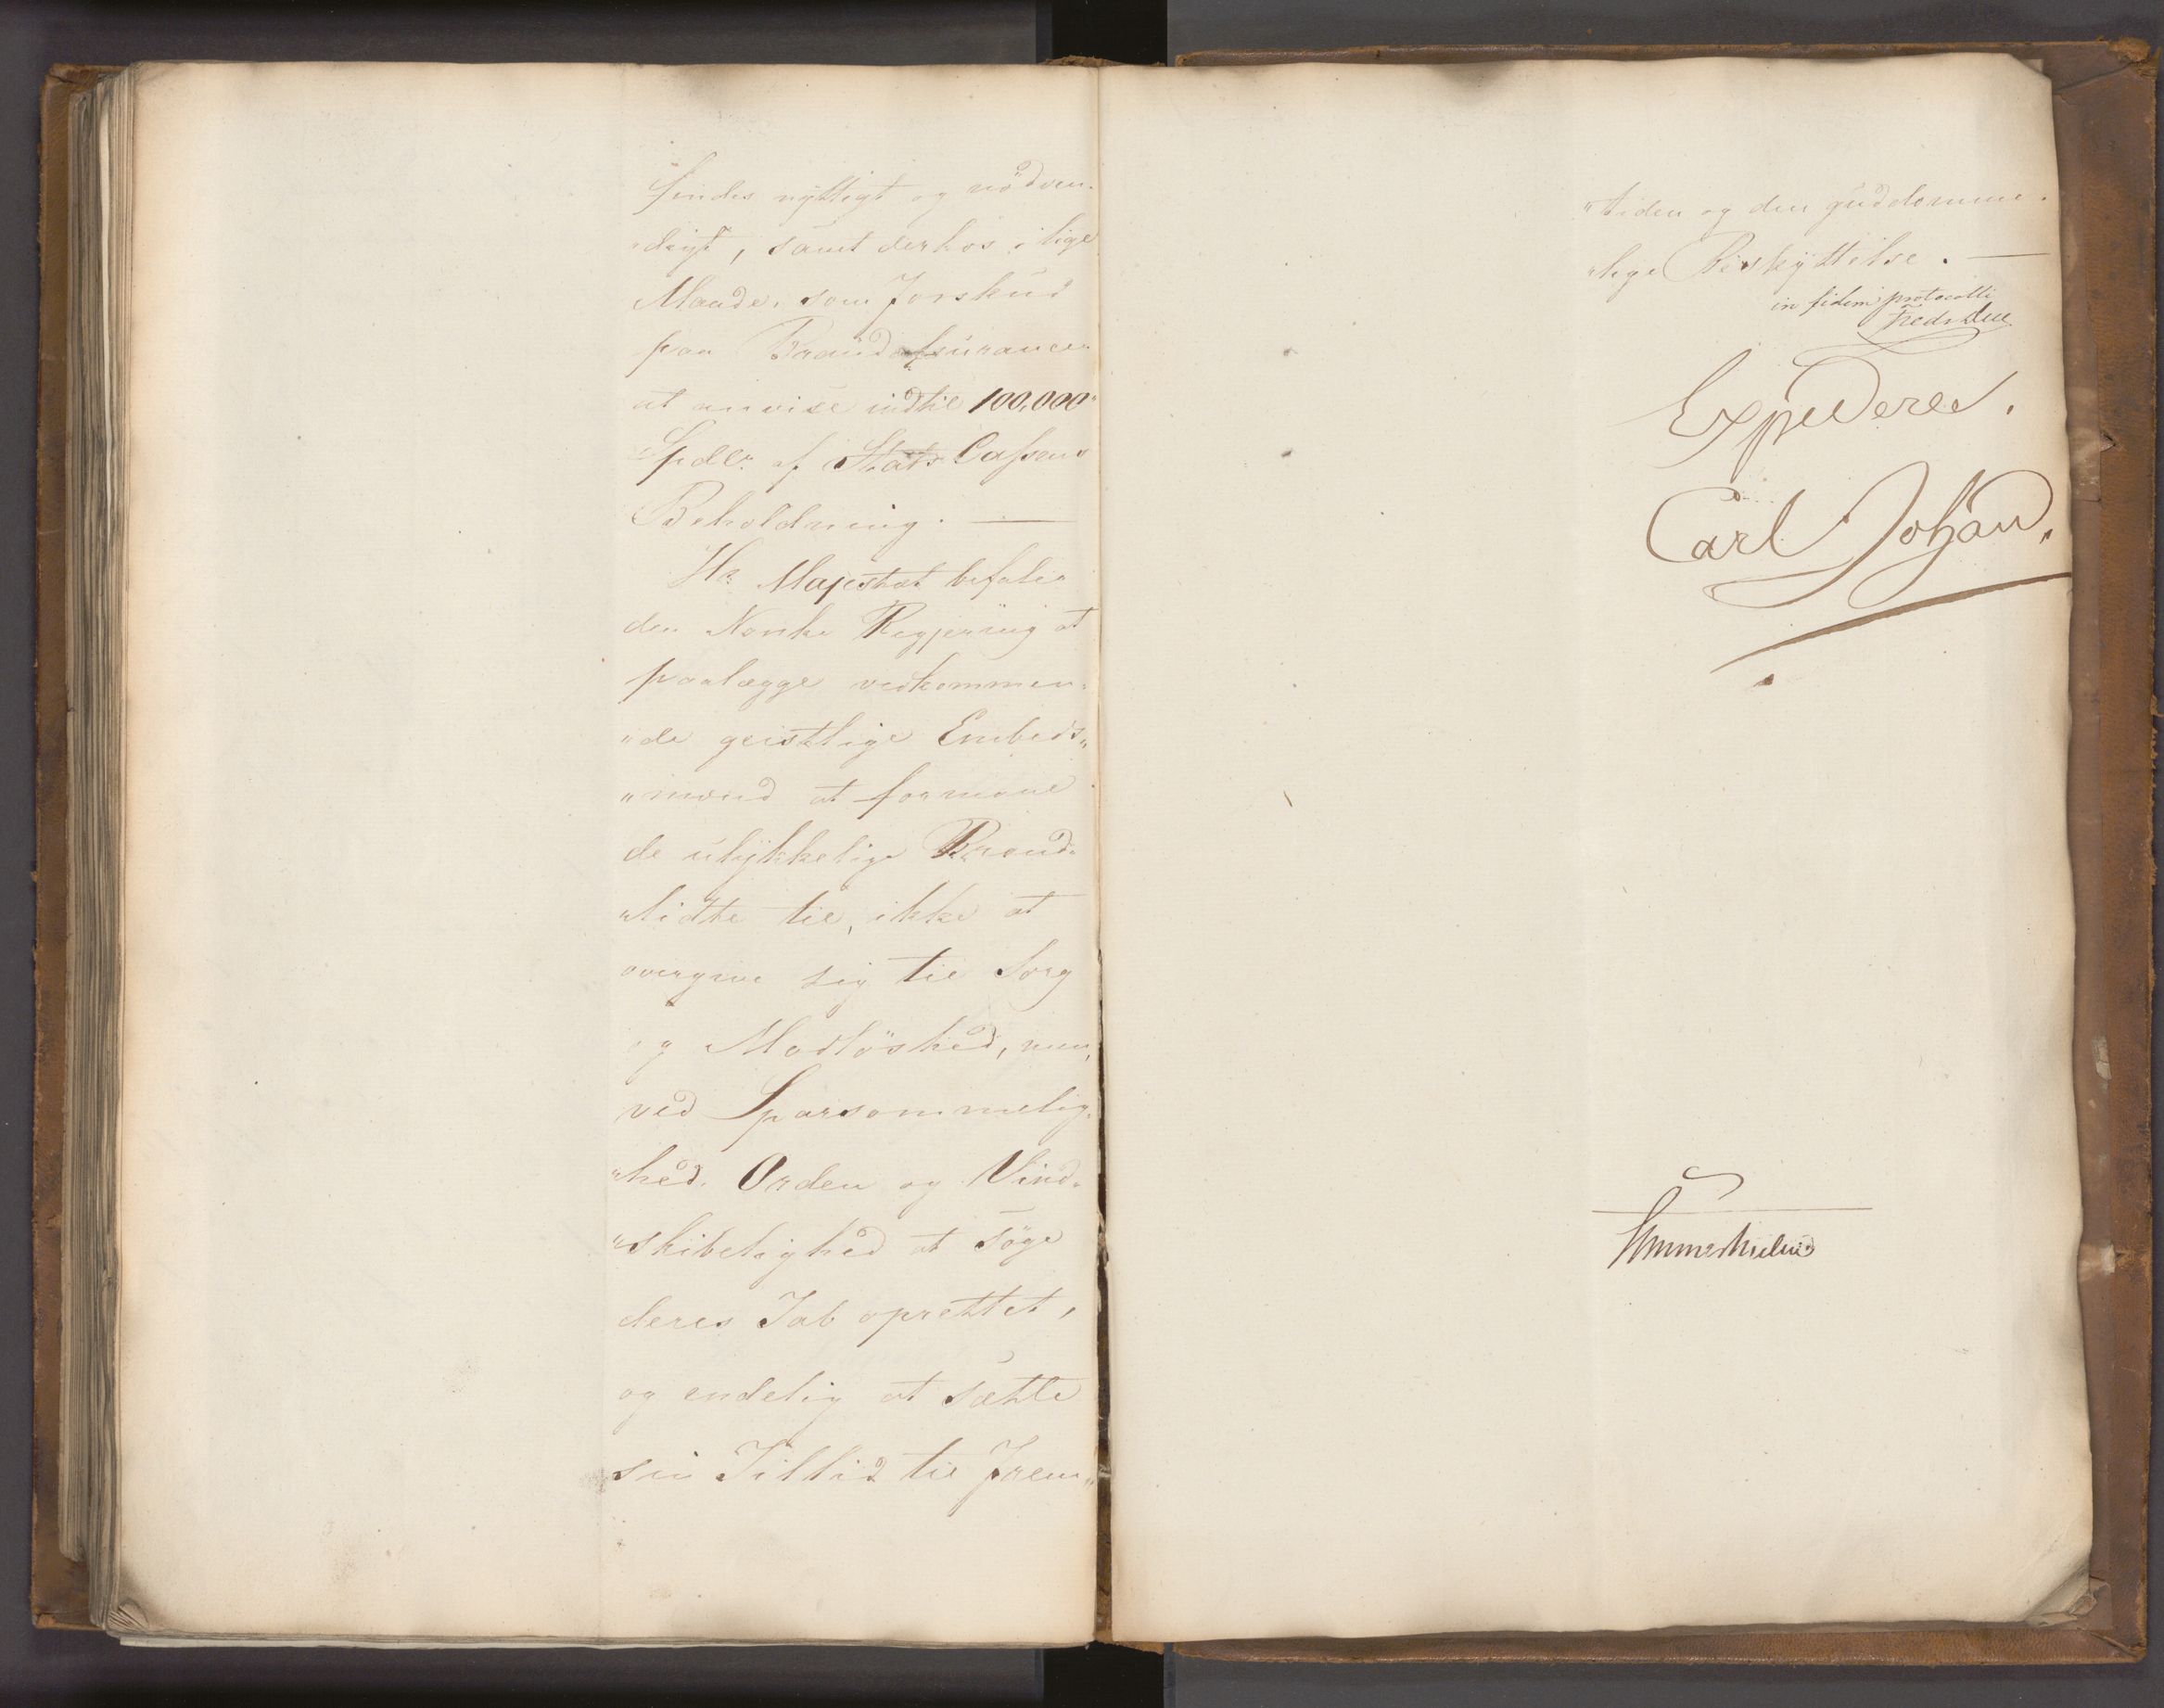 findes nyttigt og nödven„
„digt, samt derhos i lige
Maade, som Forskud
paa Brandassurancen
at anvise indtil 100,000„
Spdlr. af Stats Cassens
Beholdning. —
Hs. Majestæt befaler
den Norske Regjering at
paalægge vedkommen„
„de geistlige Embeds„
„mænd at formane
de ulykkelige Brand„
„lidte til, ikke at
overgive sig til Sorg
og Modlöshed, men,
ved Sparsommelig„
„hed, Orden og Vind„
„skibelighed at söge
deres Tab oprettet,
og endelig at sætte
sin Tillid til Frem„
„tiden og den guddomme„
„lige Beskyttelse. —
in fidem protocolli
Fredr. Due
Expederes.
Carl Johan.